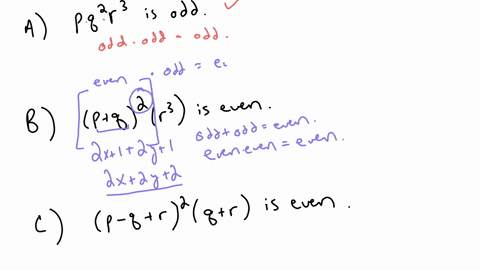 A) p·q²·r³ is odd. ✓
odd · odd = odd.
even · odd = e
B) (p+q)²(r³) is even.
2x+1+2y+1
2x+2y+2
odd+odd=even.
even·even=even.
C) (p-q+r)²(q+r) is even.